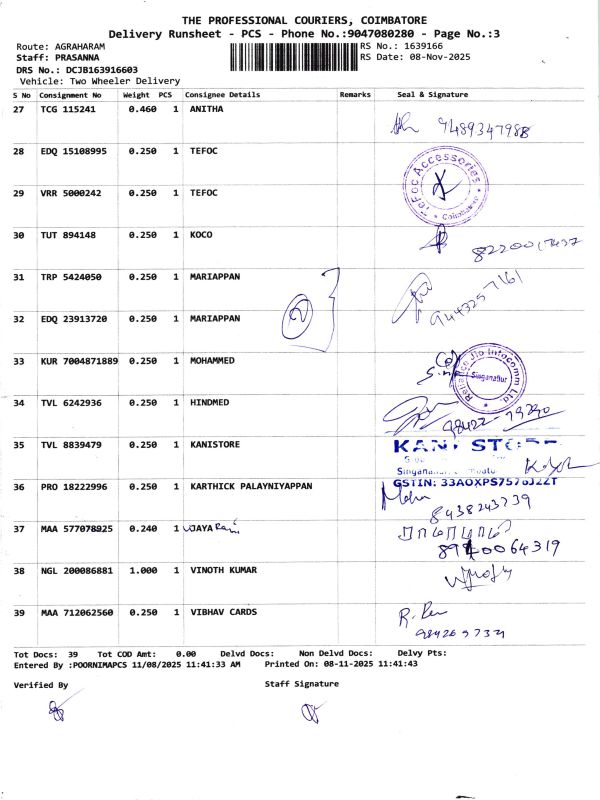 THE PROFESSIONAL COURIERS, COIMBATORE
Delivery Runsheet - PCS - Phone No.:9047080280 - Page No.:3
Route: AGRAHARAM RS No.: 1639166
Staff: PRASANNA RS Date: 08-Nov-2025
DRS No.: DCJB163916603
Vehicle: Two Wheeler Delivery
S No Consignment No Weight PCS Consignee Details Remarks Seal & Signature
27 TCG 115241 0.460 1 ANITHA
9489347988
28 EDQ 15108995 0.250 1 TEFOC
TeFoc Accessories
* Coimbatore *
29 VRR 5000242 0.250 1 TEFOC
30 TUT 894148 0.250 1 KOCO
8220017437
31 TRP 5424050 0.250 1 MARIAPPAN
9443257161
32 EDQ 23913720 0.250 1 MARIAPPAN
2
33 KUR 7004871889 0.250 1 MOHAMMED
Reliance Jio Infocomm Ltd.
Singanallur
34 TVL 6242936 0.250 1 HINDMED
98422 79230
35 TVL 8839479 0.250 1 KANISTORE
KANI STORE
GSTIN: 33AOXPS7576J2ZT
36 PRO 18222996 0.250 1 KARTHICK PALAYNIYAPPAN
8438243739
37 MAA 577078925 0.240 1 VIJAYA Rani
8940064319
38 NGL 200086881 1.000 1 VINOTH KUMAR
39 MAA 712062560 0.250 1 VIBHAV CARDS
Tot Docs: 39 Tot COD Amt: 0.00 Delvd Docs: Non Delvd Docs: Delvy Pts:
Entered By :POORNIMAPCS 11/08/2025 11:41:33 AM Printed On: 08-11-2025 11:41:43
Verified By Staff Signature